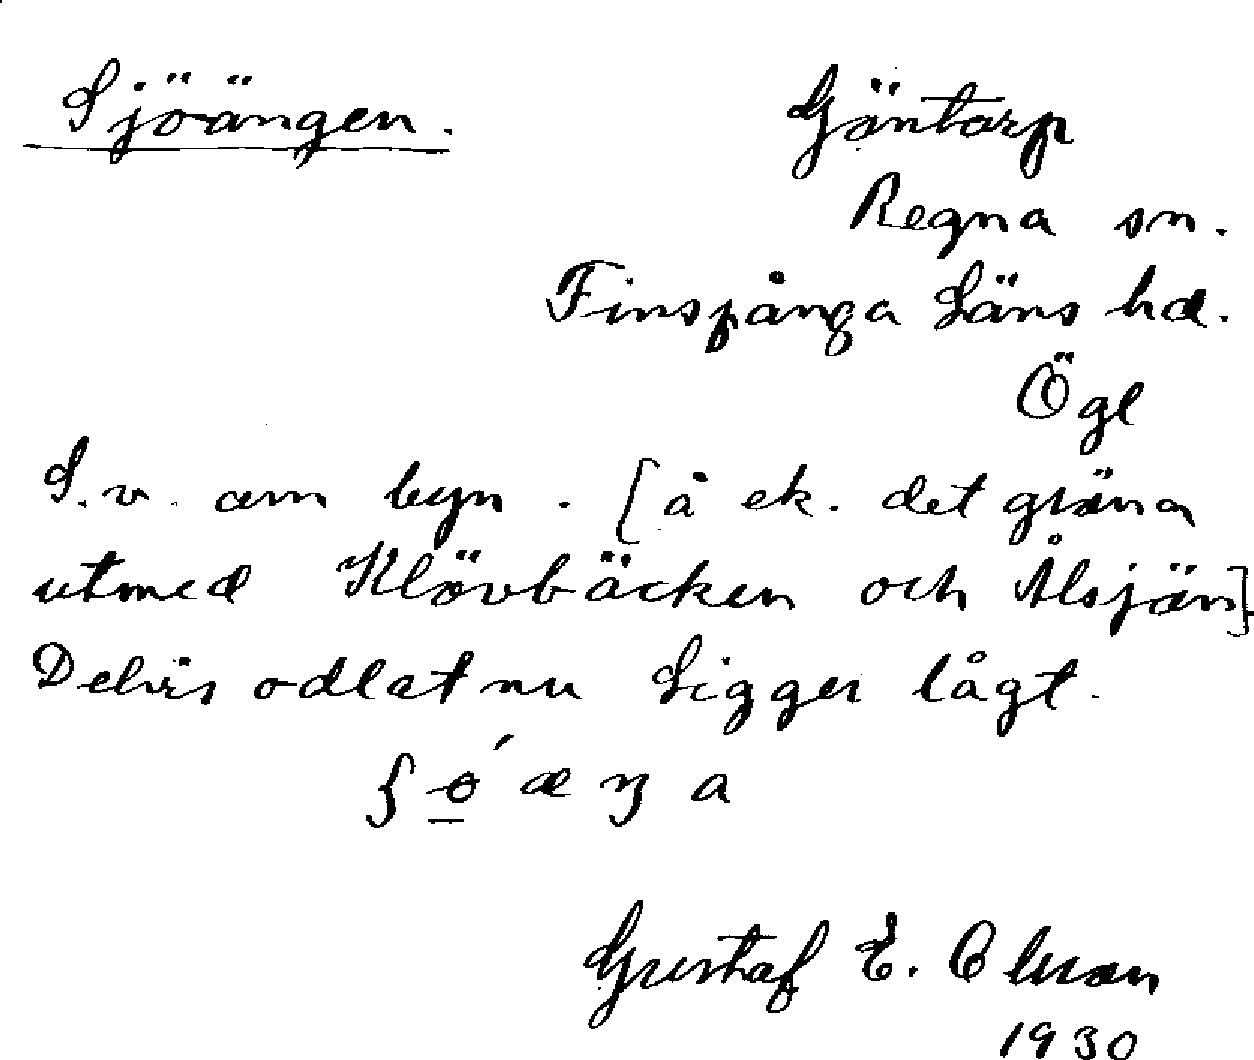 Sjöängen.
Göntorp
Regna sn.
Finspånga Läns hd.
Ögl
S.v. om byn. [å ek. det gröna
utmed Klövbäcken och Ålsjön]
Delvis odlat nu Ligger lågt.
ʃɵ́æŋa
Gustaf E. Olsson
1930